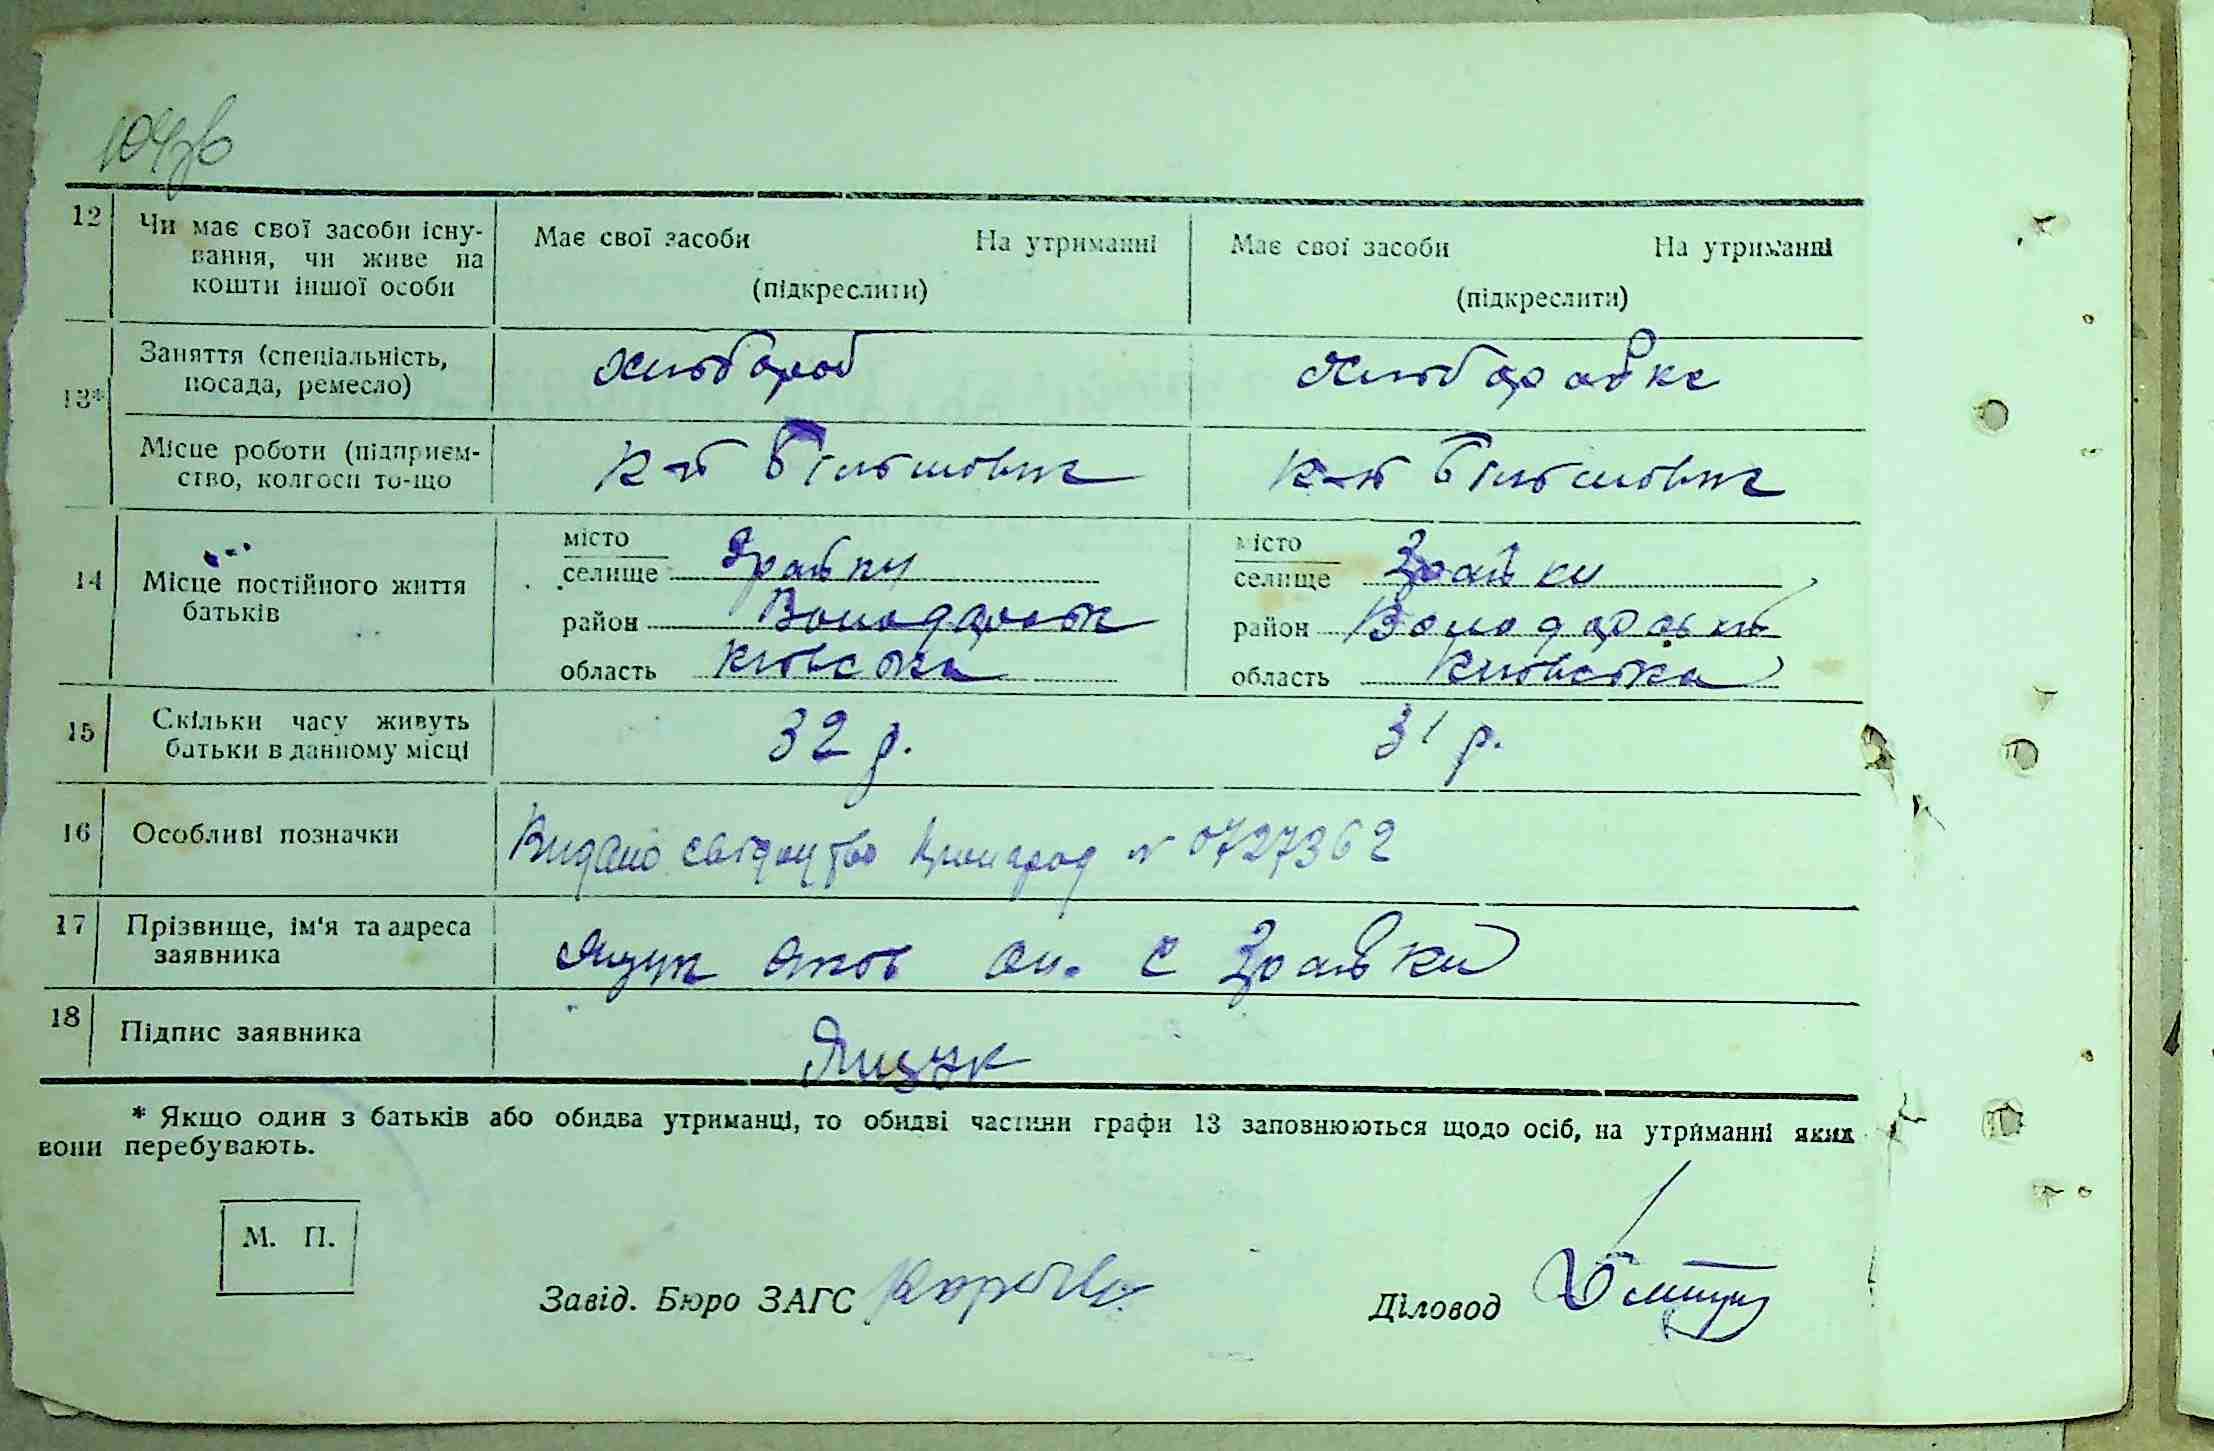 104зв
12 Чи має свої засоби існу-
вання, чи живе на
кошти іншої особи
Має свої засоби На утриманні
(підкреслити)
Має свої засоби На утриманні
(підкреслити)
13*
Заняття (спеціальність,
посада, ремесло)
хлібороб
хліборобка
Місце роботи (підприєм-
ство, колгосп то-що
к-п Більшовик
к-п Більшовик
14 Місце постійного життя
батьків
місто
селище Зрайки
район Володарськ
область Київська
місто
селище Зрайки
район Володарський
область Київська
15 Скільки часу живуть
батьки в данному місці
32 р.
31 р.
16 Особливі позначки
Видано свідоцтво №0727362
17 Прізвище, ім'я та адреса
заявника
Ящук Яков с Зрайки
18 Підпис заявника
Ящук
* Якщо один з батьків або обидва утриманці, то обидві частини графи 13 заповнюються щодо осіб, на утриманні яких
вони перебувають.
М. П.
Завід. Бюро ЗАГС
Діловод